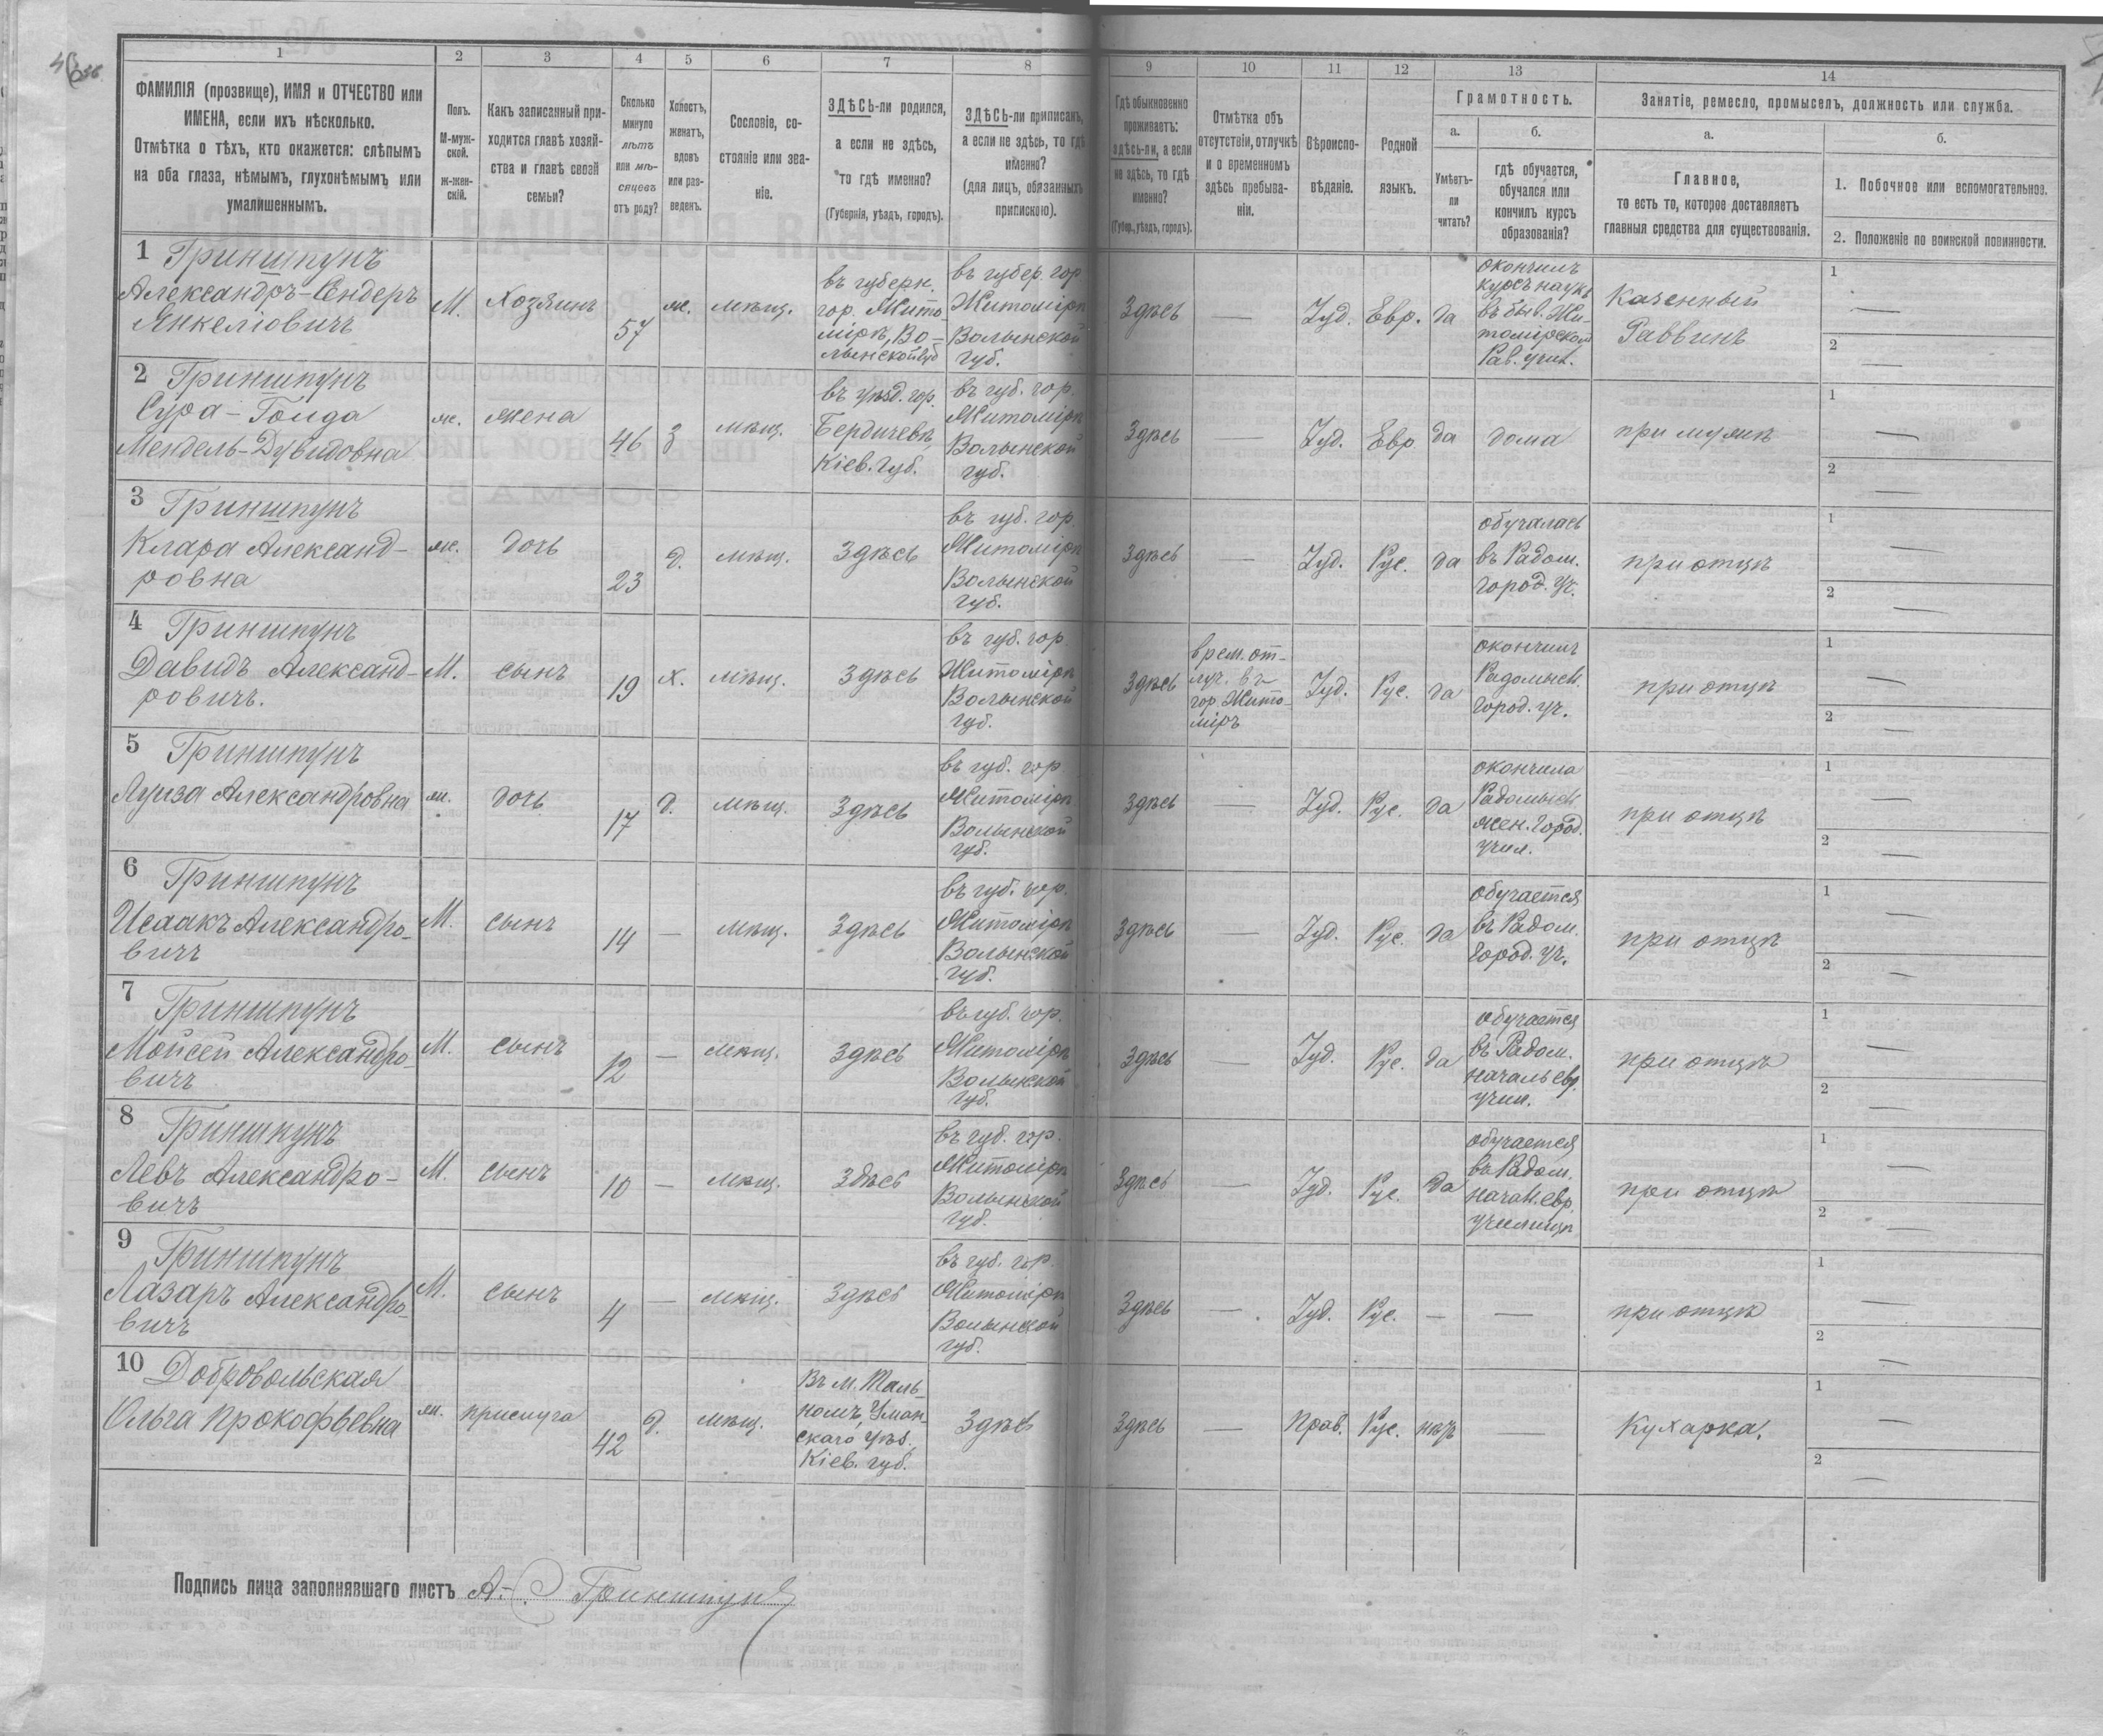 1
2
3
4
5
6
7
8
9
10
11
12
13
14
ФАМИЛІЯ (прозвище), ИМЯ и ОТЧЕСТВО или
ИМЕНА, если ихъ нѣсколько.
Отмѣтка о тѣхъ, кто окажется: слѣпымъ
на оба глаза, нѣмымъ, глухонѣмымъ или
умалишеннымъ.
Полъ.
М-муж-
ской.
ж-жен-
скій.
Какъ записанный при-
ходится главѣ хозяй-
ства и главѣ своей
семьи?
Сколько
минуло
лѣтъ
или мѣ-
сяцевъ
отъ роду?
Холостъ,
женатъ,
вдовъ
или раз-
веденъ.
Сословіе, со-
стояніе или зва-
ніе.
ЗДѢСЬ-ли родился,
а если не здѣсь,
то гдѣ именно?
(Губернія, уѣздъ, городъ).
ЗДѢСЬ-ли приписанъ,
а если не здѣсь, то гдѣ
именно?
(для лицъ, обязанныхъ
припискою).
Гдѣ обыкновенно
проживаетъ:
здѣсь-ли, а если
не здѣсь, то гдѣ
именно?
(Губер., уѣздъ, городъ).
Отмѣтка объ
отсутствіи, отлучкѣ
и о временномъ
здѣсь пребыва-
ніи.
Вѣроиспо-
вѣданіе.
Родной
языкъ.
Грамотность.
а.
б.
Умѣетъ-
ли
читать?
гдѣ обучается,
обучался или
кончилъ курсъ
образованія?
Занятіе, ремесло, промыселъ, должность или служба.
а.
б.
Главное,
то есть то, которое доставляетъ
главныя средства для существованія.
1. Побочное или вспомогательное.
2. Положеніе по воинской повинности.
1 Гринштунъ
Александръ-Сендеръ
Янкеліовичъ
М.
Хозяинъ
57
ж.
мѣщ.
въ губерн.
гор. Жито-
мірѣ, Во-
лынской губ
въ губер. гор
Житомірѣ
Волынской
губ.
Здѣсь
—
Іуд.
Евр.
да
окончилъ
курсъ наукъ
въ быв. Жи-
томірскомъ
Рав. учил.
Казенный
Раввинъ
1 —
2 —
2 Гринштунъ
Сура-Гольда
Мендель-Дувидовна
ж.
жена
46
З
мѣщ.
въ уѣзд. гор.
Бердичевѣ,
Кіев. Губ.
въ губ. гор.
Житомірѣ
Волынской
губ.
Здѣсь
—
Іуд.
Евр
да
дома
при мужѣ
1 —
2 —
3 Гринштунъ
Клара Александ-
ровна
ж.
дочь
23
д.
мѣщ.
Здѣсь
въ губ. гор.
Житомірѣ
Волынской
губ.
Здѣсь
—
Іуд.
Рус.
да
обучалась
въ Радом.
город. Уч.
при отцѣ
1 —
2 —
4 Гринштунъ
Давидъ Александ-
ровичъ.
М.
сынъ
19
х.
мѣщ.
Здѣсь
въ губ. гор.
Житомірѣ
Волынской
губ.
Здѣсь
врем. от-
луч. въ
гор Жито-
міръ
Іуд.
Рус.
да
окончилъ
Радомысл.
Город. уч.
при отцѣ
1 —
2 —
5 Гринштунъ
Луиза Александровна
ж.
дочь
17
д.
мѣщ.
Здѣсь
въ губ. гор.
Житомірѣ
Волынской
губ.
здѣсь
—
Іуд.
Рус.
да
окончила
Радомысл.
жен. Город.
учил.
при отцѣ
1 —
2 —
6 Гринштунъ
Исаакъ Александро-
вичъ
М.
сынъ
14
—
мѣщ.
Здѣсь
въ губ. гор.
Житомірѣ
Волынской
губ.
Здѣсь
—
Іуд.
Рус.
да
обучается
въ Радом.
Город. Уч.
при отцѣ
1 —
2 —
7 Гринштунъ
Мойсей Александро-
вичъ
М.
сынъ
12
—
мѣщ.
Здѣсь
въ губ. гор.
Житомірѣ
Волынской
губ.
Здѣсь
—
Іуд.
Рус.
да
обучается
въ Радом.
началь евр.
учил.
при отцѣ
1 —
2 —
8 Гринштунъ
Левъ Александро-
вичъ
М.
сынъ
10
—
мѣщ.
Здѣсь
въ губ. гор.
Житомірѣ
Волынской
губ.
Здѣсь
—
Іуд.
Рус.
да
обучается
въ Радом.
начал. евр.
училищѣ
при отцѣ
1 —
2 —
9 Гринштунъ
Лазаръ Александро-
вичъ
М.
сынъ
4
—
мѣщ.
Здѣсь
въ губ. гор.
Житомірѣ
Волынской
губ.
Здѣсь
—
Іуд.
Рус.
—
—
при отцѣ
1 —
2 —
10 Добровольская
Ольга Прокофьевна
ж.
прислуга
42
д.
мѣщ.
Въ м. Таль-
номъ, Уман-
скаго Уѣз.
Кіев. губ.
Здѣсь
Здѣсь
—
Прав.
Рус.
нѣтъ
—
Кухарка.
1 —
2 —
Подпись лица заполнявшаго листъ А. С. Гринштунъ